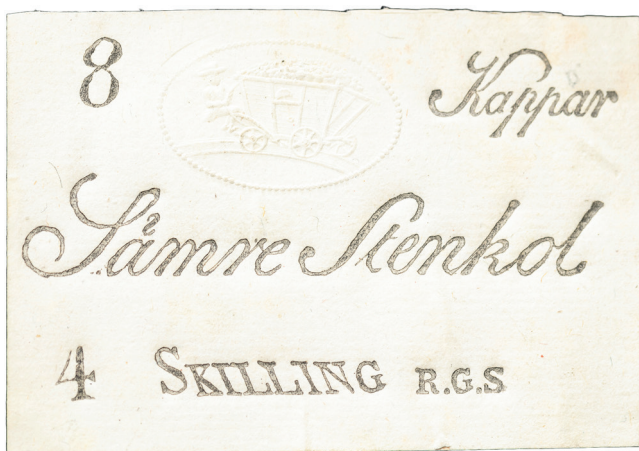 8 Kappar
Såmre Stenkol
4 SKILLING R.G.S